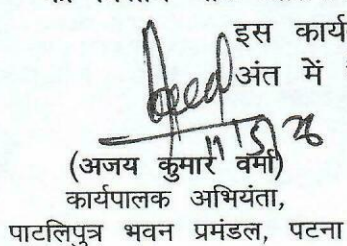 इस कार्य
अंत में
11/5/26
(अजय कुमार वर्मा)
कार्यपालक अभियंता,
पाटलिपुत्र भवन प्रमंडल, पटना